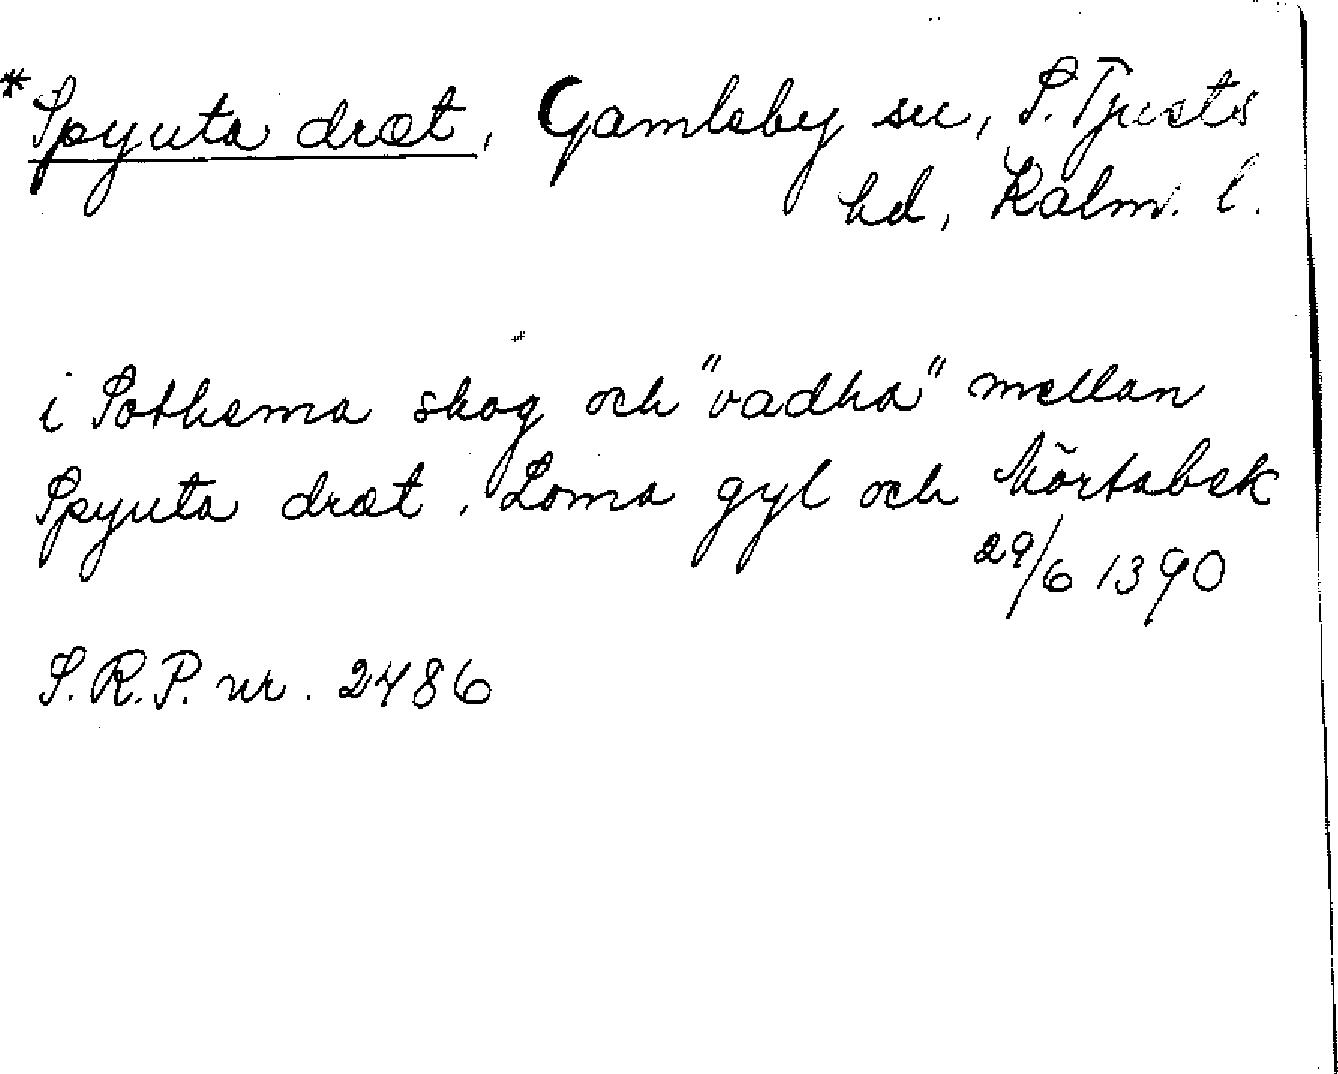 *Spyuta dræt, Gamleby sn, S. Tjusts
hd, Kalm. l.
i Pothema skog och "vadha" mellan
Spyuta dræt, Loma gyl och Mörtabek
29/6 1390
S.R.P. nr. 2486